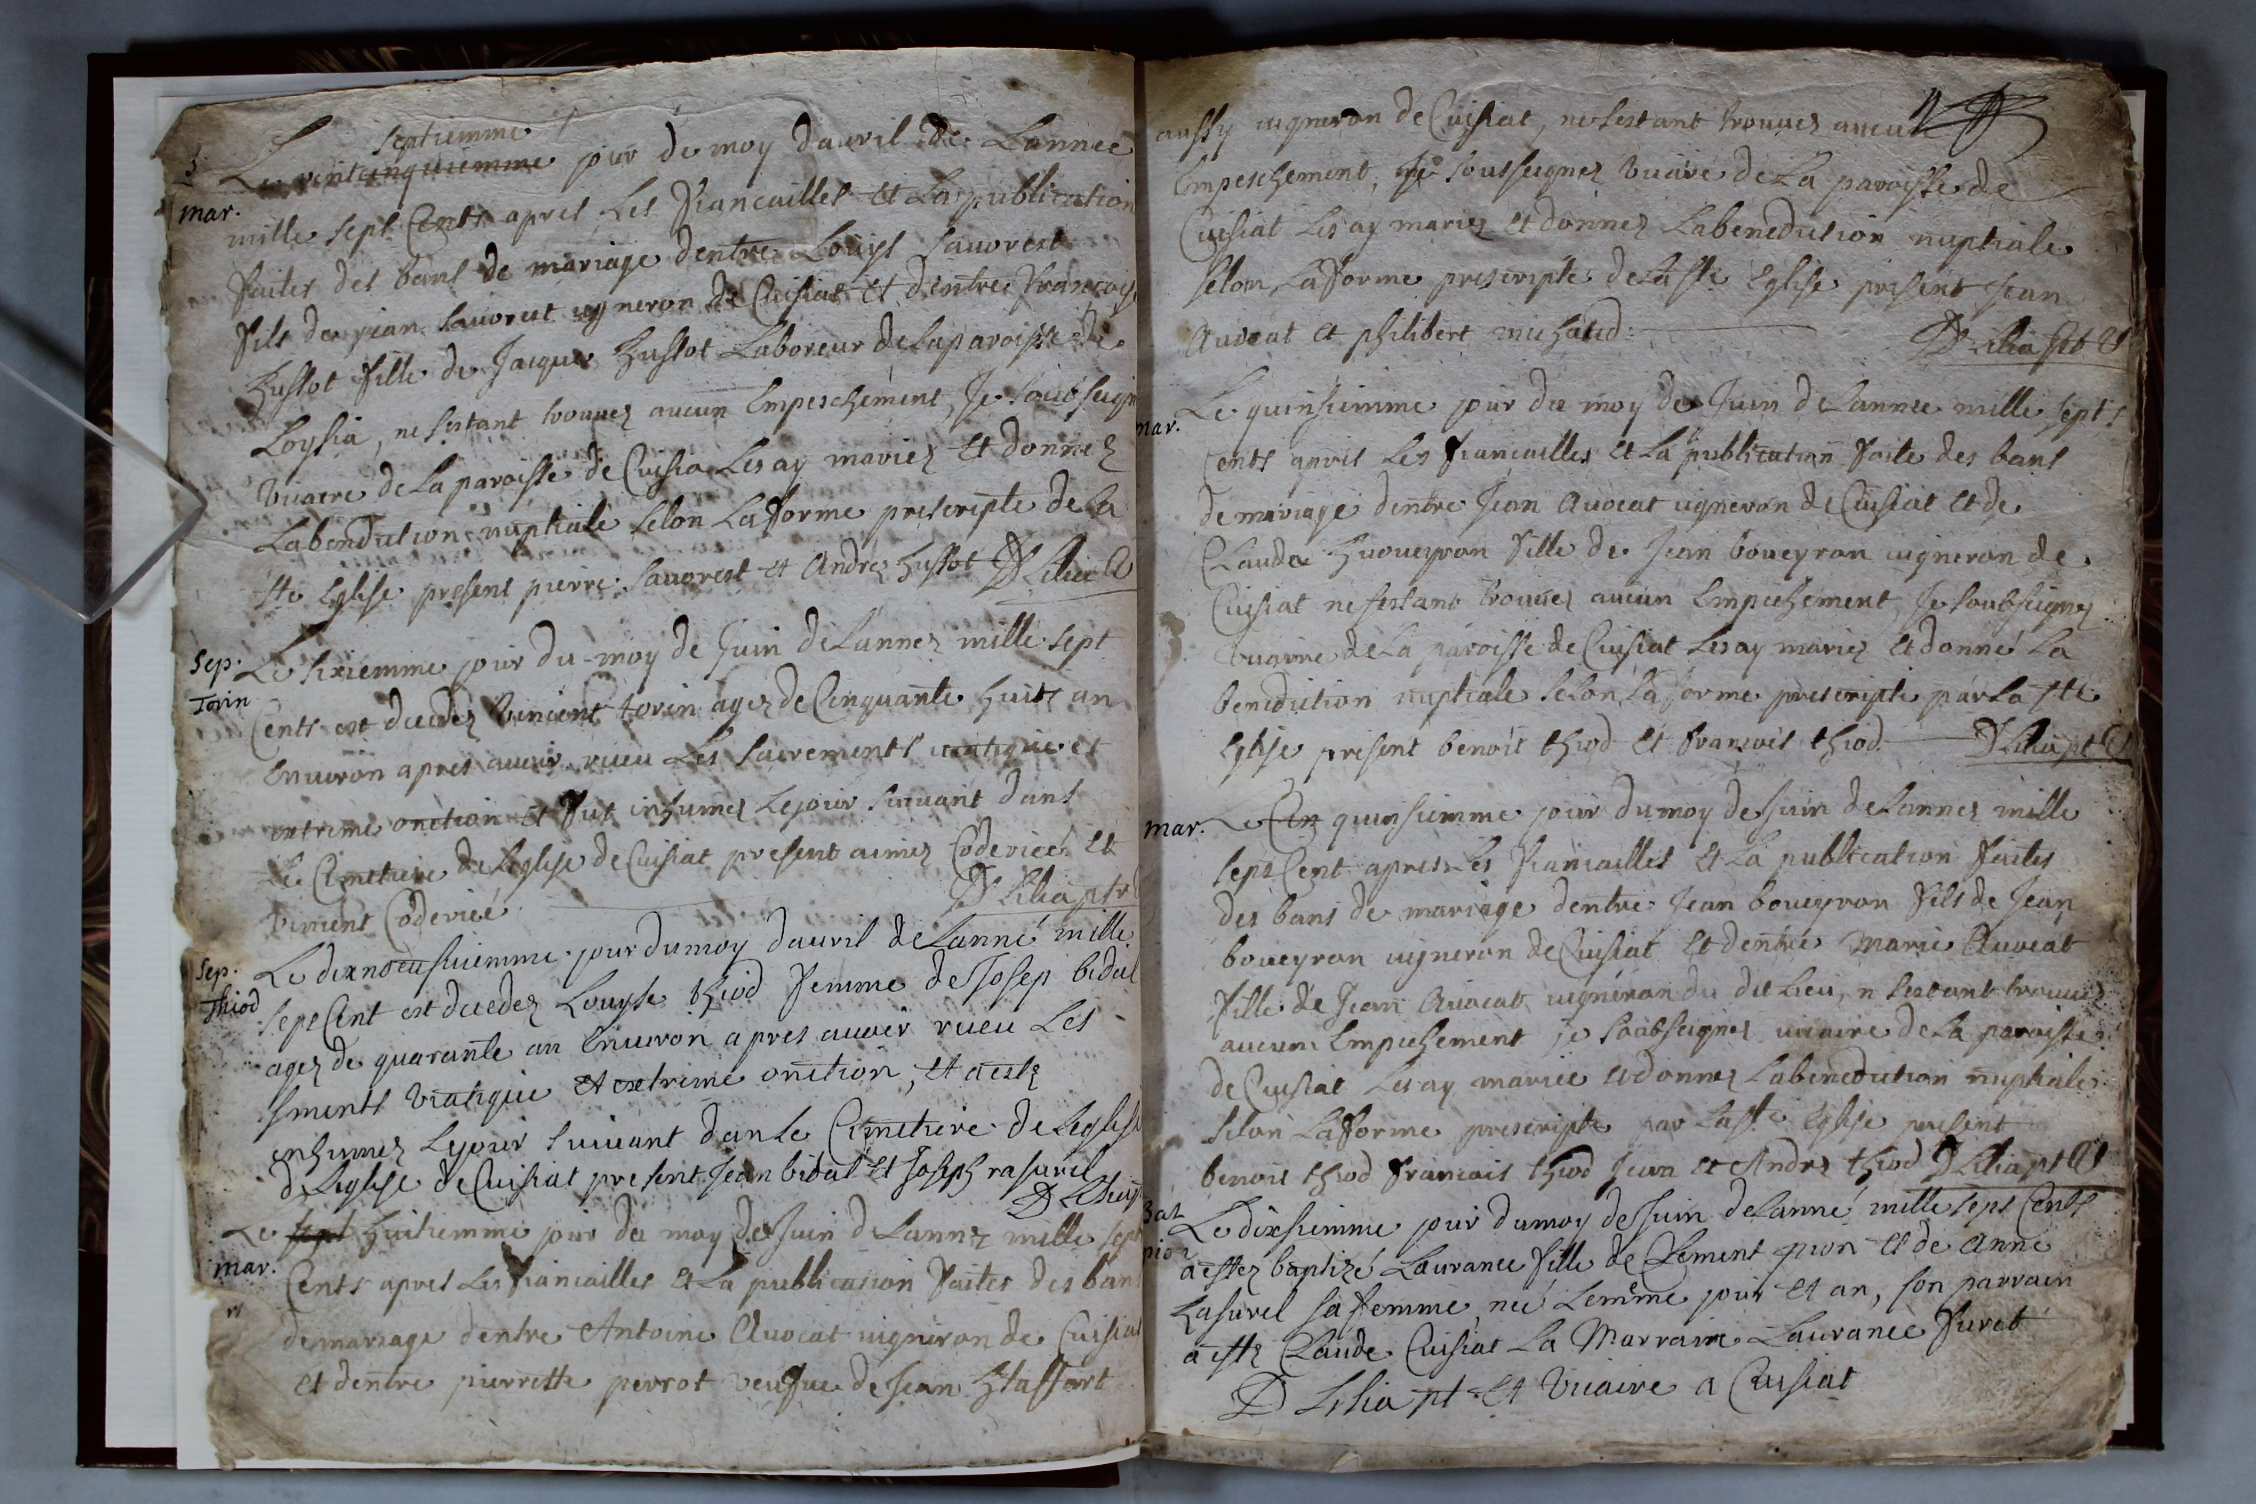 3
mar.
septiemme
Le vintcinquiemme jour de moy dauril de Lannee
mille sept Cents apres Les fiancailles et La publication
faites des bans de mariage dentre Louys sauorest
fils de jean sauoret uigneron de Cuisiat et dentre francoise
hustot fille de Jacque hustot Laboreur de La paroisse de
Loysia, ne sestant trouuez aucun Empeschement, Je soubseign
vicaire de La paroisse de Cuisia Les ay mariez et donnez
La benediction nuptiale selon La forme prescripte de La
ste Eglise present pierre sauorest et Andrez hustot D Lilia
Sep.
Torin
Le sixiemme jour du moy de Juin de Lannez mille sept
Cents est decedez vincent torin agez de Cinquante huits an
Enuiron apres auoir receu Les sacrements uiatique et
extreme onction et fut inhumez Le jour suiuant dans
Le Cimetiere de Leglise de Cuisiat present aimez Coderieé et
vincent Coderieé D Lilia ptr
Sep.
Thiod
Le dixneusuiemme jour du moy dauril de Lanné mille
sept Cent est decedez Louyse thiod femme de Josep bidal
agez de quarante an Enuiron apres auoir receu Les
sments viatique et extreme onction, et a estz
inhumez Le jour suiuant dan Le Cimetiere de Leglise
d Leglise de Cuisiat present Jean bidal et Joseph rasurel
D Lilia
mar.
Le sept huitiemme jour du moy de Juin d Lannez mille sept
Cents apres Les fiancailles et La publication faites des bans
de mariage dentre Antoine Auocat uigniron de Cuisiat
et dentre pierrette perrot veufue de Jean Staffort
aussy uigneron de Cuisiat, ne sestant trouuez aucun
Empeschement, Je soubseignez vicaire de La paroisse de
Cuisiat Les ay mariez et donnez La benediction nuptiale
selon La forme prescripte de La ste Eglise present Jean
Auocat et philibert michaud D Lilia pt
mar.
Le quinsiemme jour du moy de Juin de Lannee mille sept
Cents apres Les fiancailles et La publication faite des bans
de mariage dentre Jean Auocat uigneron de Cuisiat et de
Clauda boueyron fille de Jean boueyron uigneron de
Cuisiat ne sestant trouuez aucun Empechement, Je soubseignez
vicairre de La paroisse de Cuisiat Les ay mariez et donné La
benediction nuptiale selon La forme prescripte par La ste
Eglise present benoit thiod et francois thiod D Lilia pt
mar.
Le Cin quinsiemme jour du moy de Juin de Lannez mille
sept Cent apres Les fiancailles et La publication faites
des bans de mariage dentre Jean boueyron fils de Jean
boueyron uigneron de Cuisiat et dentre Marie Auocat
fille de Jean Auocat uigniron du dit Lieu, n sestant trouuez
aucun Empechement je soubseignez uicaire de La paroisse
de Cuisiat Les ay mariée et donnez La benediction nuptiale
selon La forme prescripte par La ste Eglise present
benoit thiod francois thiod Jean et Andrez thiod D Lilia pt
Bat
pion
Le dixsiemme jour du moy de Juin de Lanné mille sept Cents
a estez baptizé Laurance fille de Clement pion et de Anne
Lasurel sa femme neé Le meme jour et an, son parrain
a estz Claude Cuisiat La Marraine Laurance furet
D Lilia pt et vicaire a Cuisiat